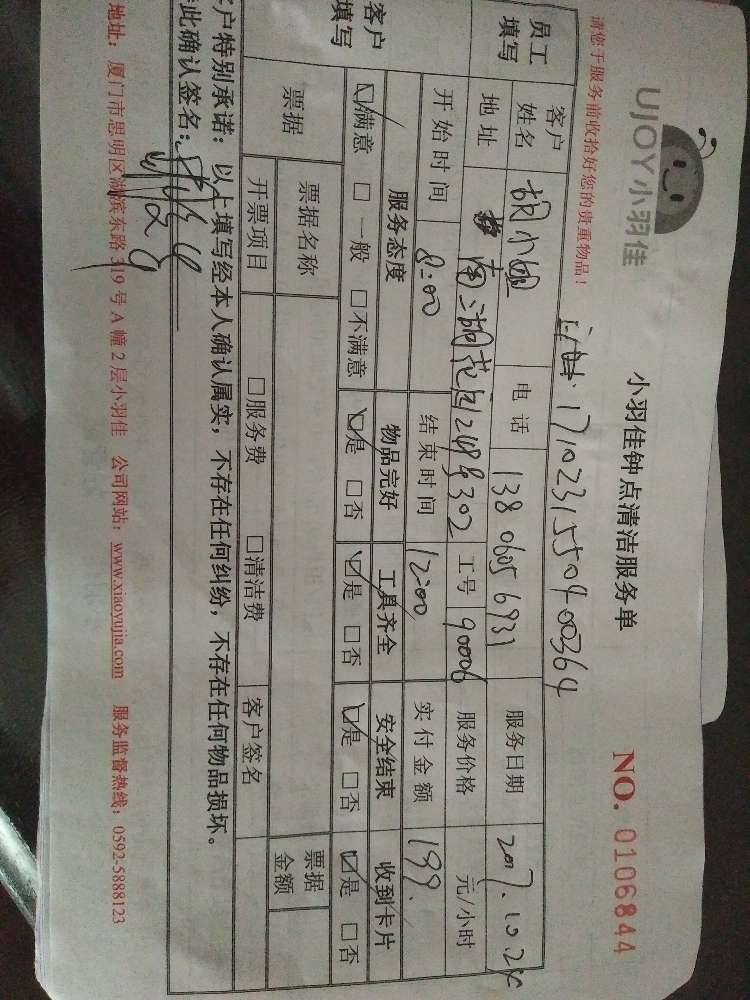 UJOY小羽佳
小羽佳钟点清洁服务单
NO. 0106844
请您于服务前收拾好您的贵重物品!
1710231550400364
员工填写 客户姓名 胡小姐 电话 13806056931 服务日期 2017.10.24
地址 南湖花园 302 工号 90006 服务价格 元/小时
开始时间 8:00 结束时间 12:00 实付金额 199.
客户填写 服务态度 物品完好 工具齐全 安全结束 收到卡片
☑满意 □一般 □不满意 ☑是 □否 ☑是 □否 ☑是 □否 ☑是 □否
票据 票据名称 票据金额
开票项目 □服务费 □清洁费 客户签名
客户特别承诺:以上填写经本人确认属实,不存在任何纠纷,不存在任何物品损坏。
此确认签名:
地址:厦门市思明区湖滨东路319号A幢2层小羽佳 公司网站:www.xiaoyujia.com 服务监督热线:0592-5888123